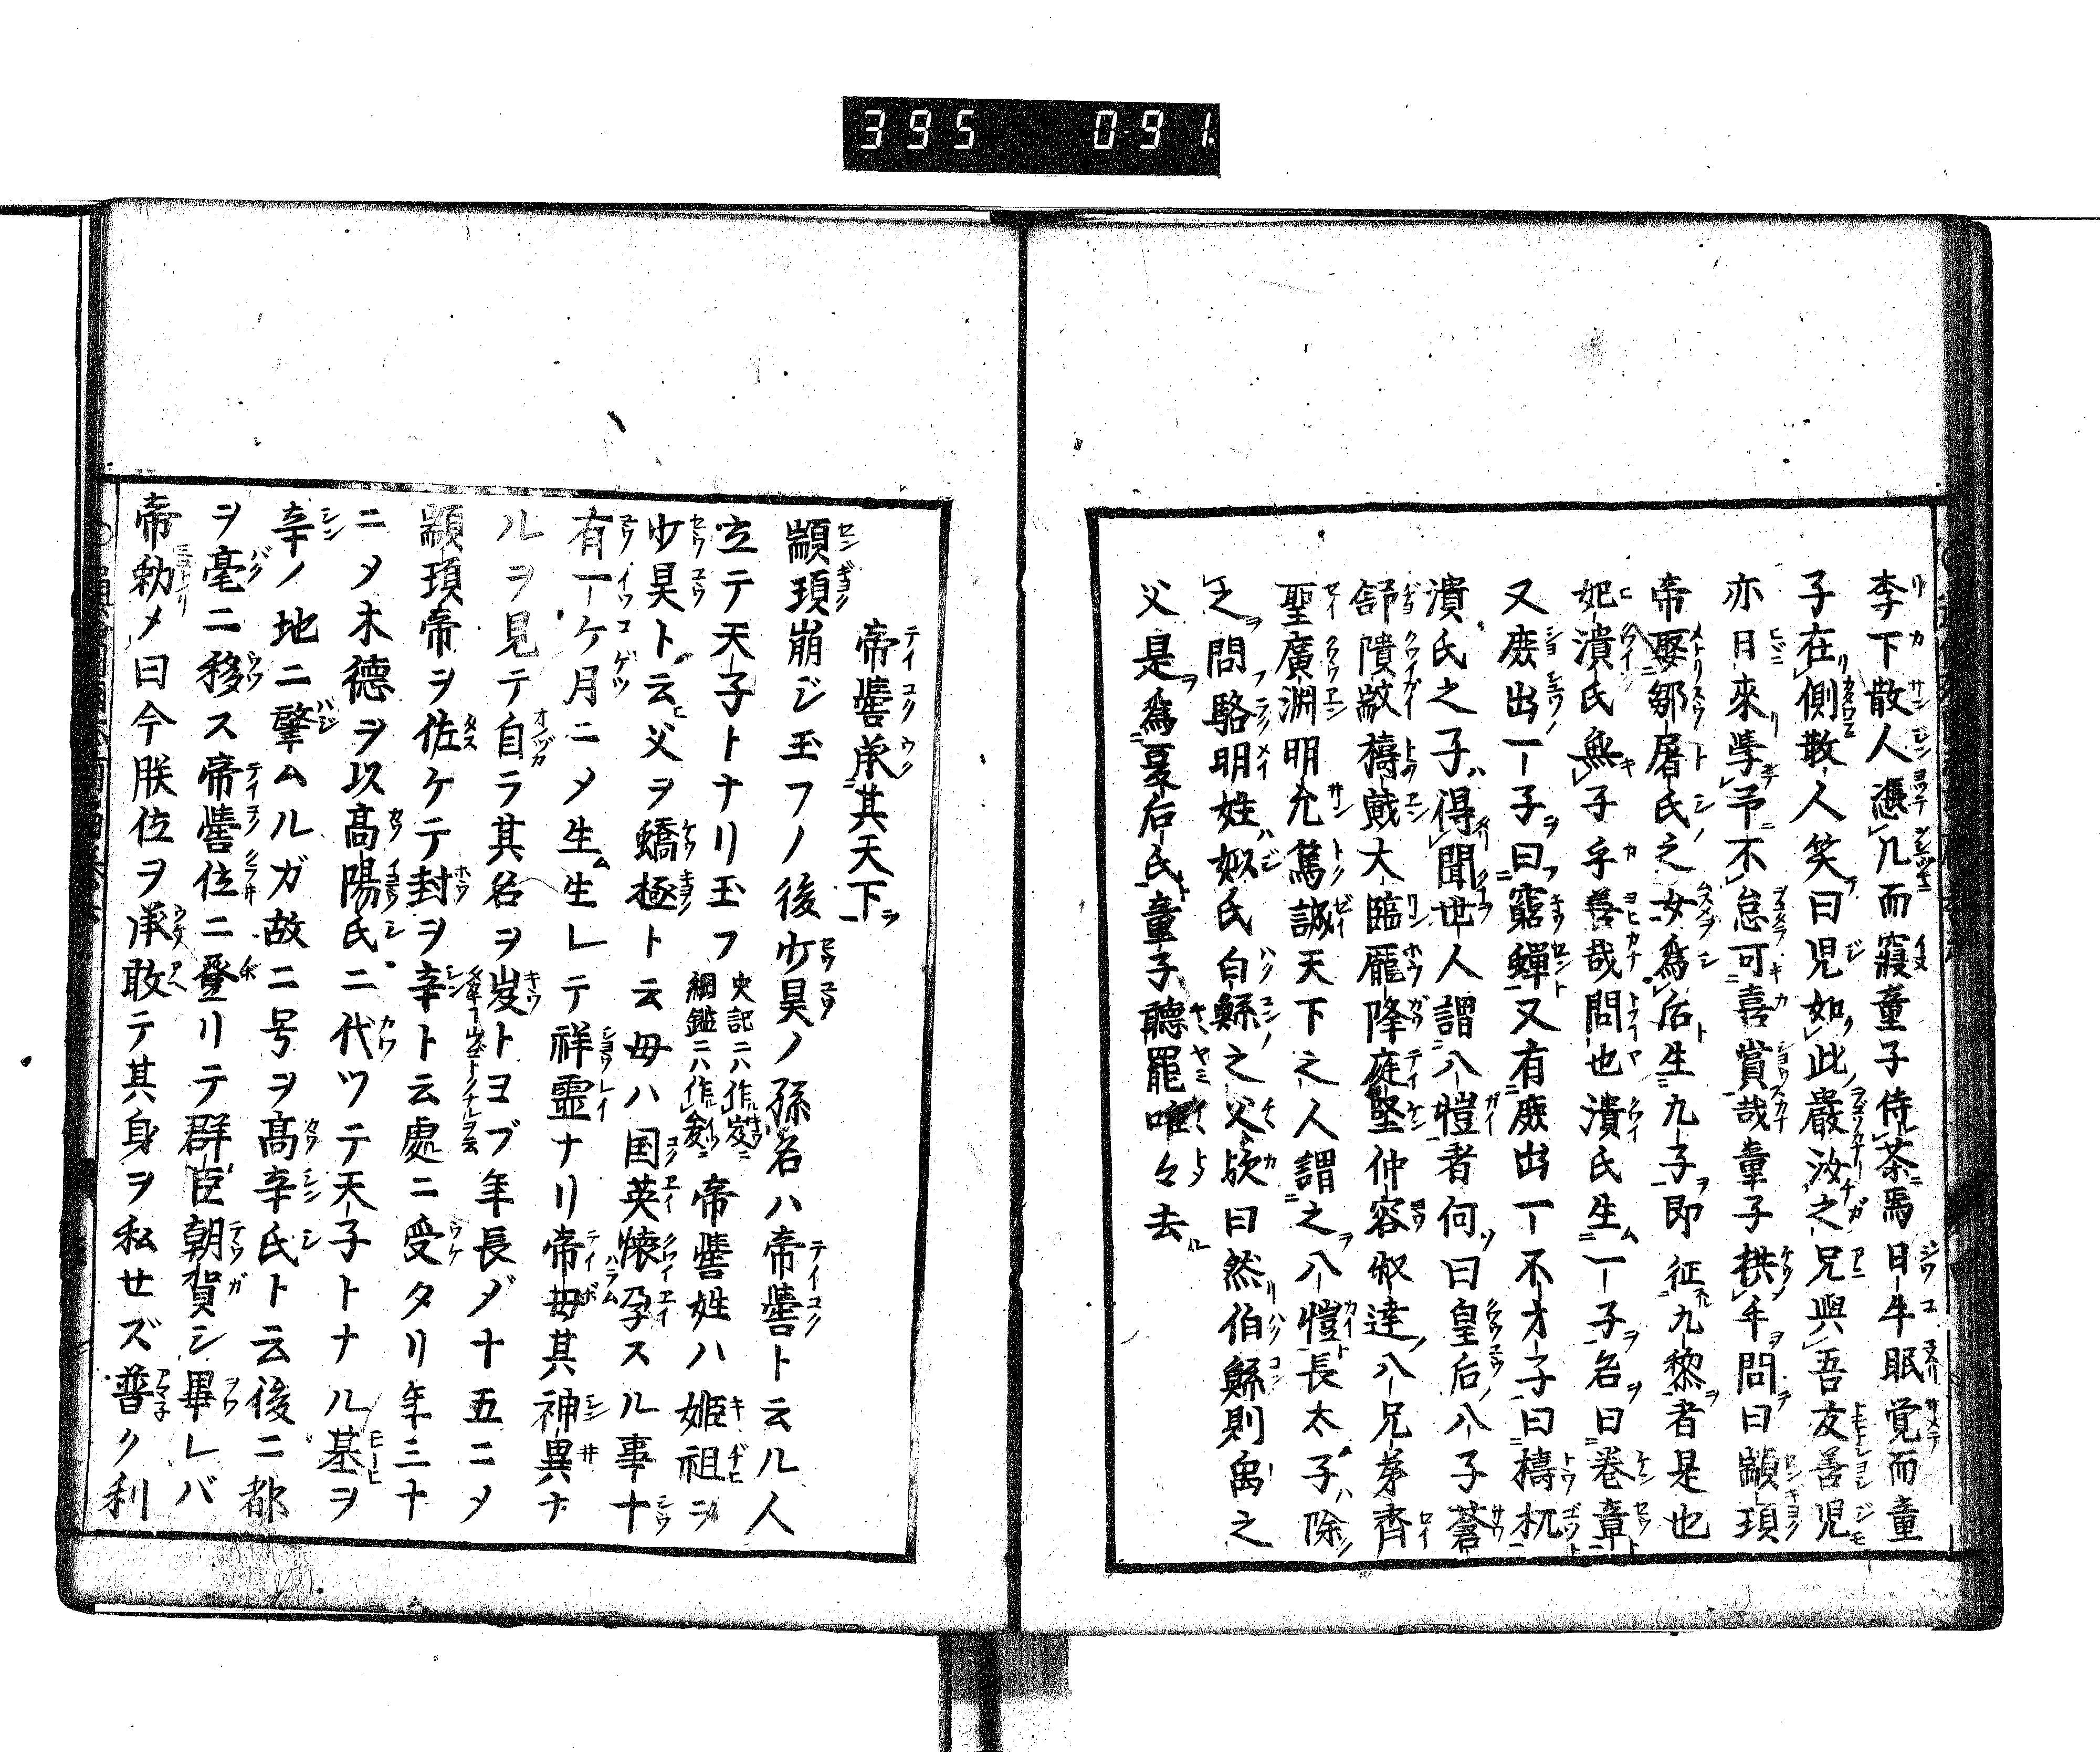 395 091
李下散人憑几而寢童子侍茶焉日午眠覚而童
子在側散人笑曰児如此嚴汝之兄與吾友善児
亦日來學予不怠可喜賞哉童子拱手問曰顓頊
帝娶鄒屠氏之女為后生九子即征九黎者是也
妃潰氏無子乎善哉問也潰氏生一子名曰卷章
又庶出一子曰窮蟬又有庶出一不才子曰檮杌
潰氏之子得聞世人謂八愷者何曰皇后八子蒼
舒隤敳檮戭大臨龎降庭堅仲容叔達八兄弟齊
聖廣淵明允篤誠天下之人謂之八愷長太子除
之問駱明姓姒氏白鯀之父欤曰然伯鯀則禹之
父是為夏后氏童子聽罷唯々去
帝嚳承其天下
顓頊崩ジ玉フノ後少昊ノ孫名ハ帝嚳ト云ル人
立テ天子トナリ玉フ 史記ニハ作岌 綱鑑ニハ作夋 帝嚳姓ハ姫祖ヲ
少昊ト云父ヲ蟜極ト云毋ハ国英懐孕スル事十
有一ケ月ニメ生ム生レテ祥霊ナリ帝毋其神異ナ
ルヲ見テ自ラ其名ヲ岌トヨブ年長ヅ十五ニメ
顓頊帝ヲ佐ケテ封ヲ辛ト云處ニ受タリ年三十
ニメ木德ヲ以高陽氏ニ代ツテ天子トナル基ヲ
辛ノ地ニ肇ムルガ故ニ号ヲ髙辛氏ト云後ニ都
ヲ亳ニ移ス帝嚳位ニ登リテ群臣朝賀シ畢レバ
帝勅メ曰今朕位ヲ承敢テ其身ヲ私セズ普ク利